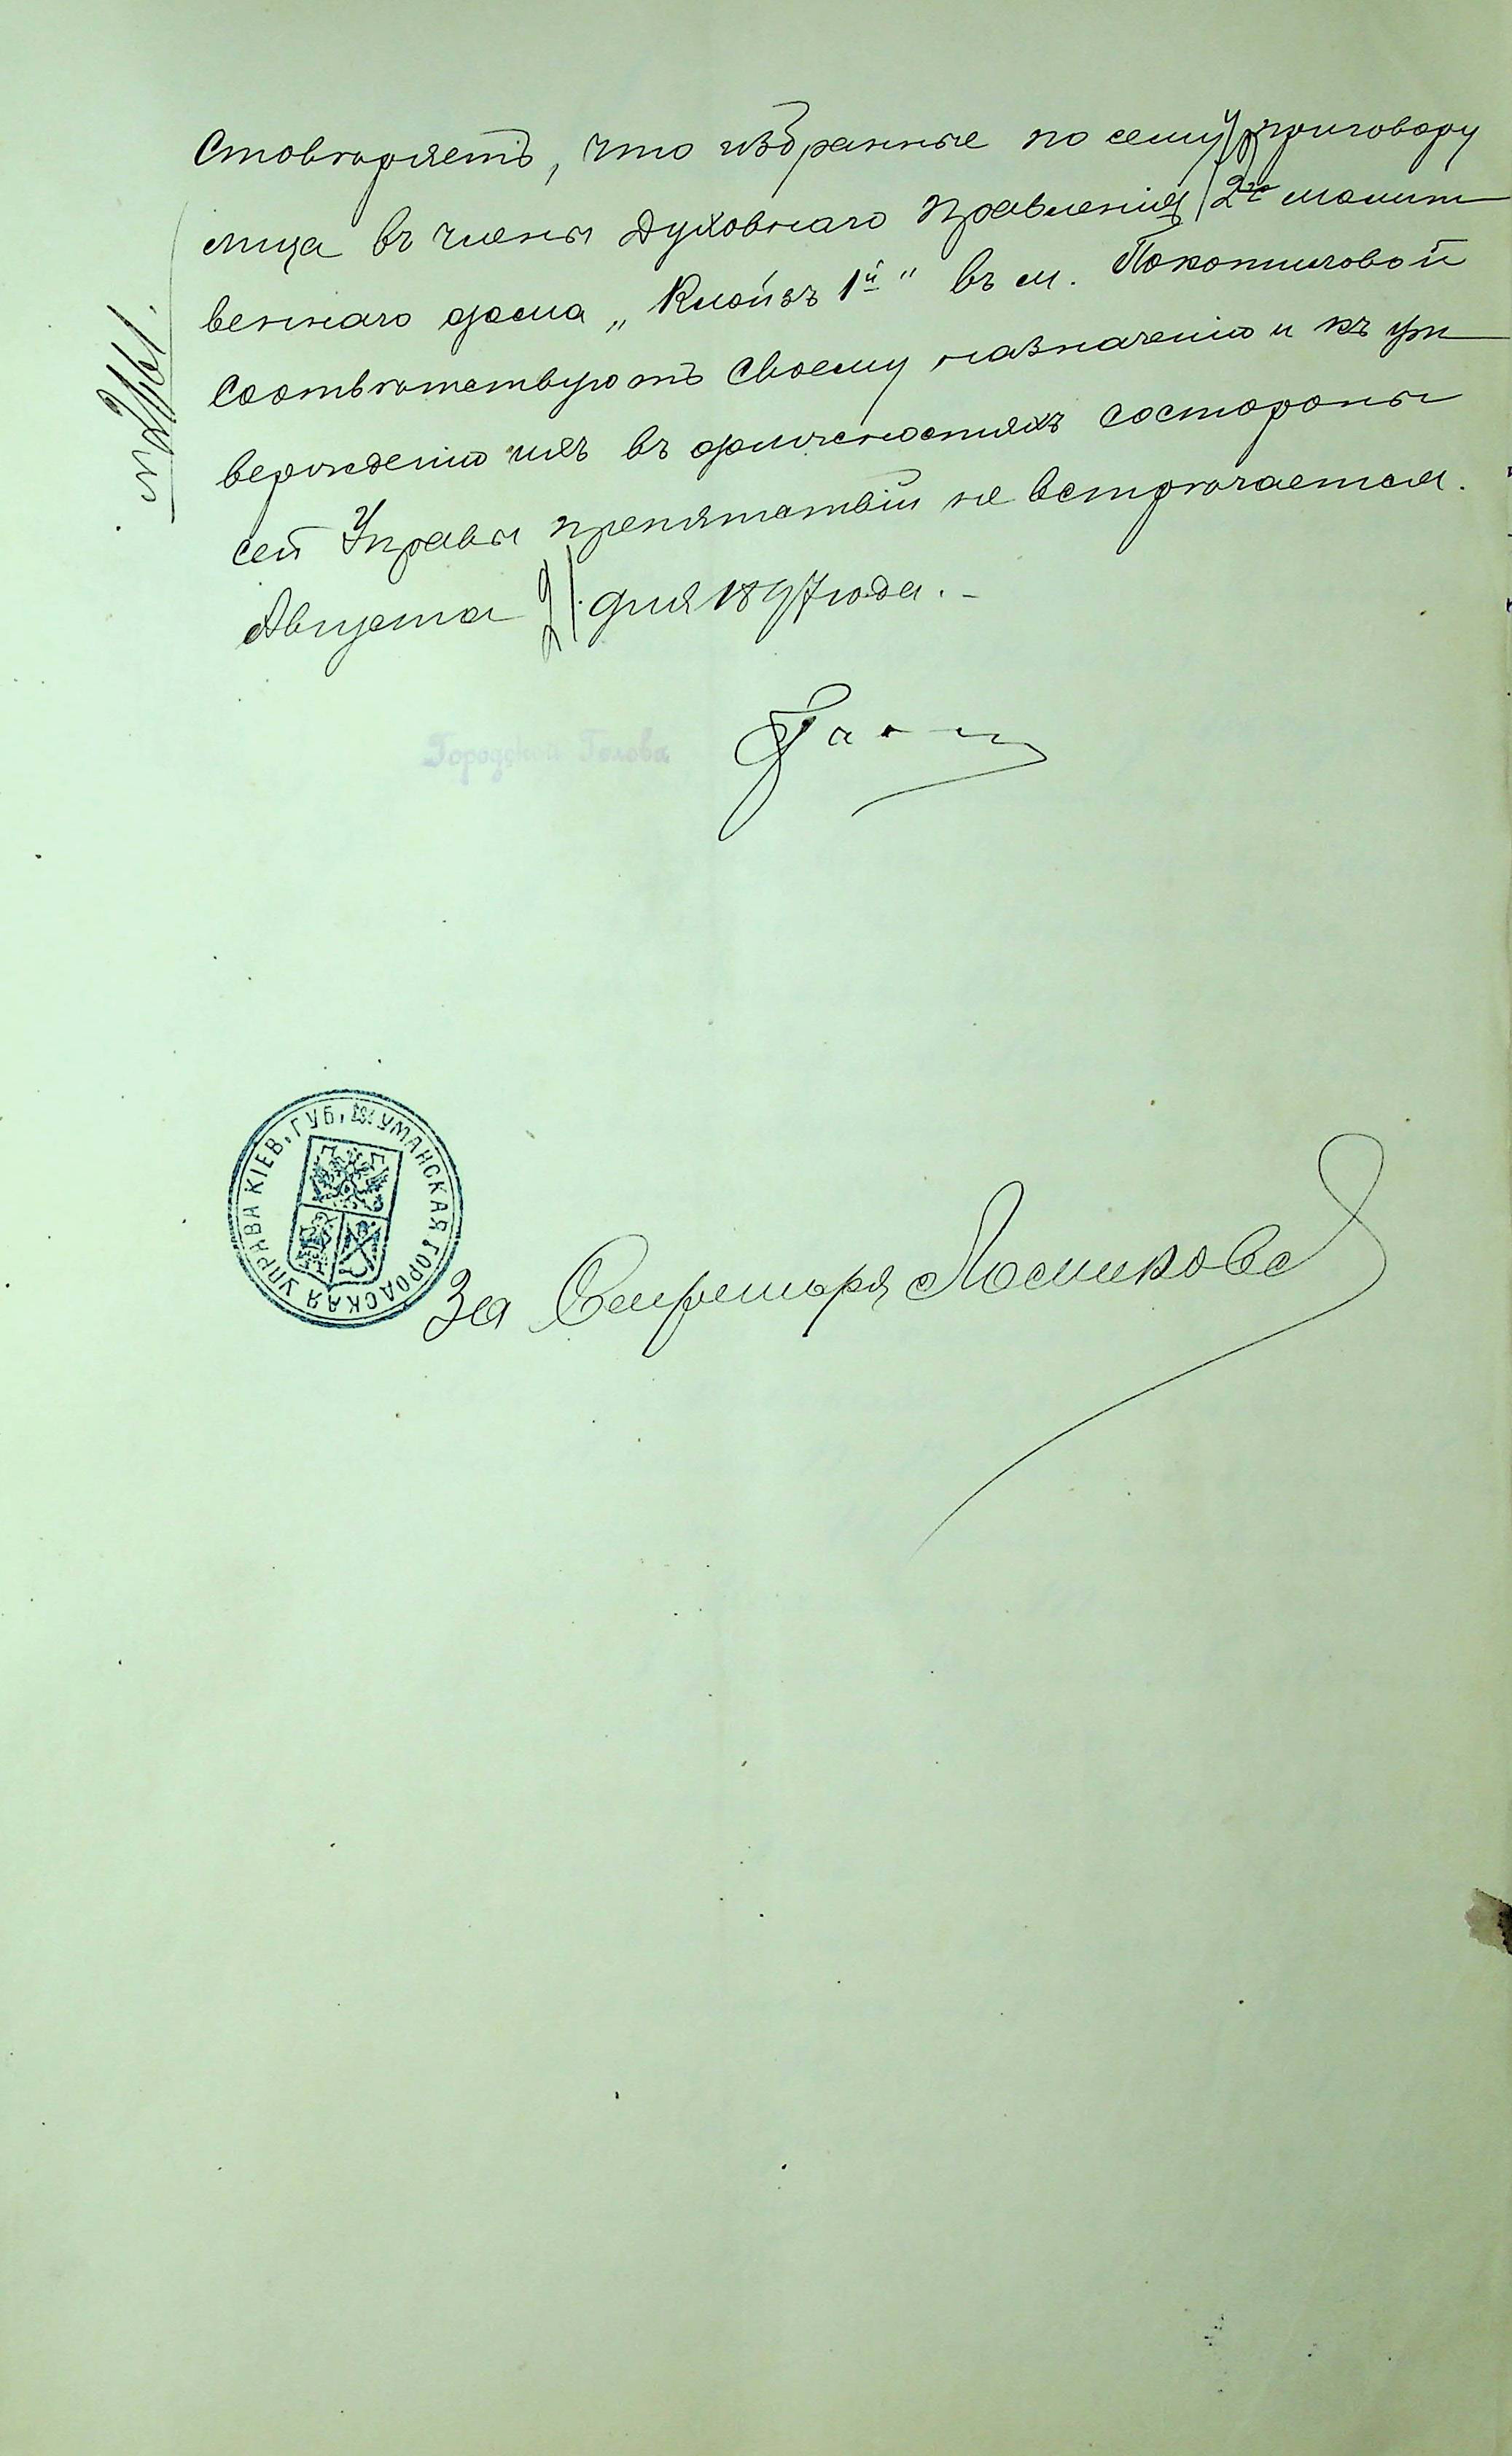 стовѣряетъ, что избранные по сему приговору
лица въ члены Духовнаго Правленія 2го молит
веннаго дома „Клойзъ 1й" въ м. Покотиловой
соотвѣтствуютъ своему назначенію и къ ут
вержденію ихъ въ должностяхъ состороны
сей Управы препятствій не встрѣчается.
Августа 21 дня 1897 года.
Городской Голова
УМАНСКАЯ ГОРОДСКАЯ УПРАВА КІЕВ. ГУБ.
За Секретаря